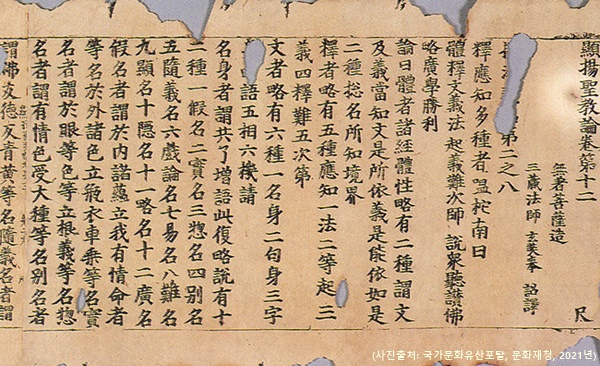 顯揚聖教論卷第十二 尺
無著菩薩造
三藏法師 玄奘奉 詔譯
第二之八
釋應知多種者嗢柁南曰
體釋文義法 起義難次師 說衆聽讚佛
略廣學勝利
論曰體者諸經體性略有二種謂文
及義當知文是所依義是能依如是
二種捴名所知境界
釋者略有五種應知一法二等起三
義四釋難五次第
文者略有六種一名身二句身三字
語五相六機請
名身者謂共了增語此復略說有十
二種一假名二實名三惣名四別名
五隨義名六戲論名七易名八難名
九顯名十隱名十一略名十二廣名
假名者謂於內諸蘊立我有情命者
等名於外諸色立瓶衣車乘等名實
名者謂於眼等色等立根義等名惣
名者謂有情色受大種等名別名者
謂佛友德友青黃等名隨義名者謂
(사진출처: 국가문화유산포탈, 문화재청, 2021년)